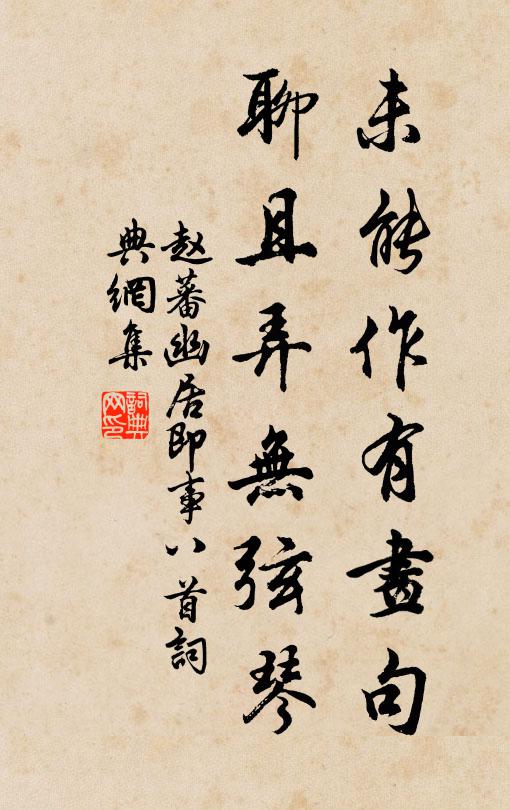 未能作有畫句
聊且弄無弦琴
赵蕃幽居即事八首詞
典網集
詞典网印